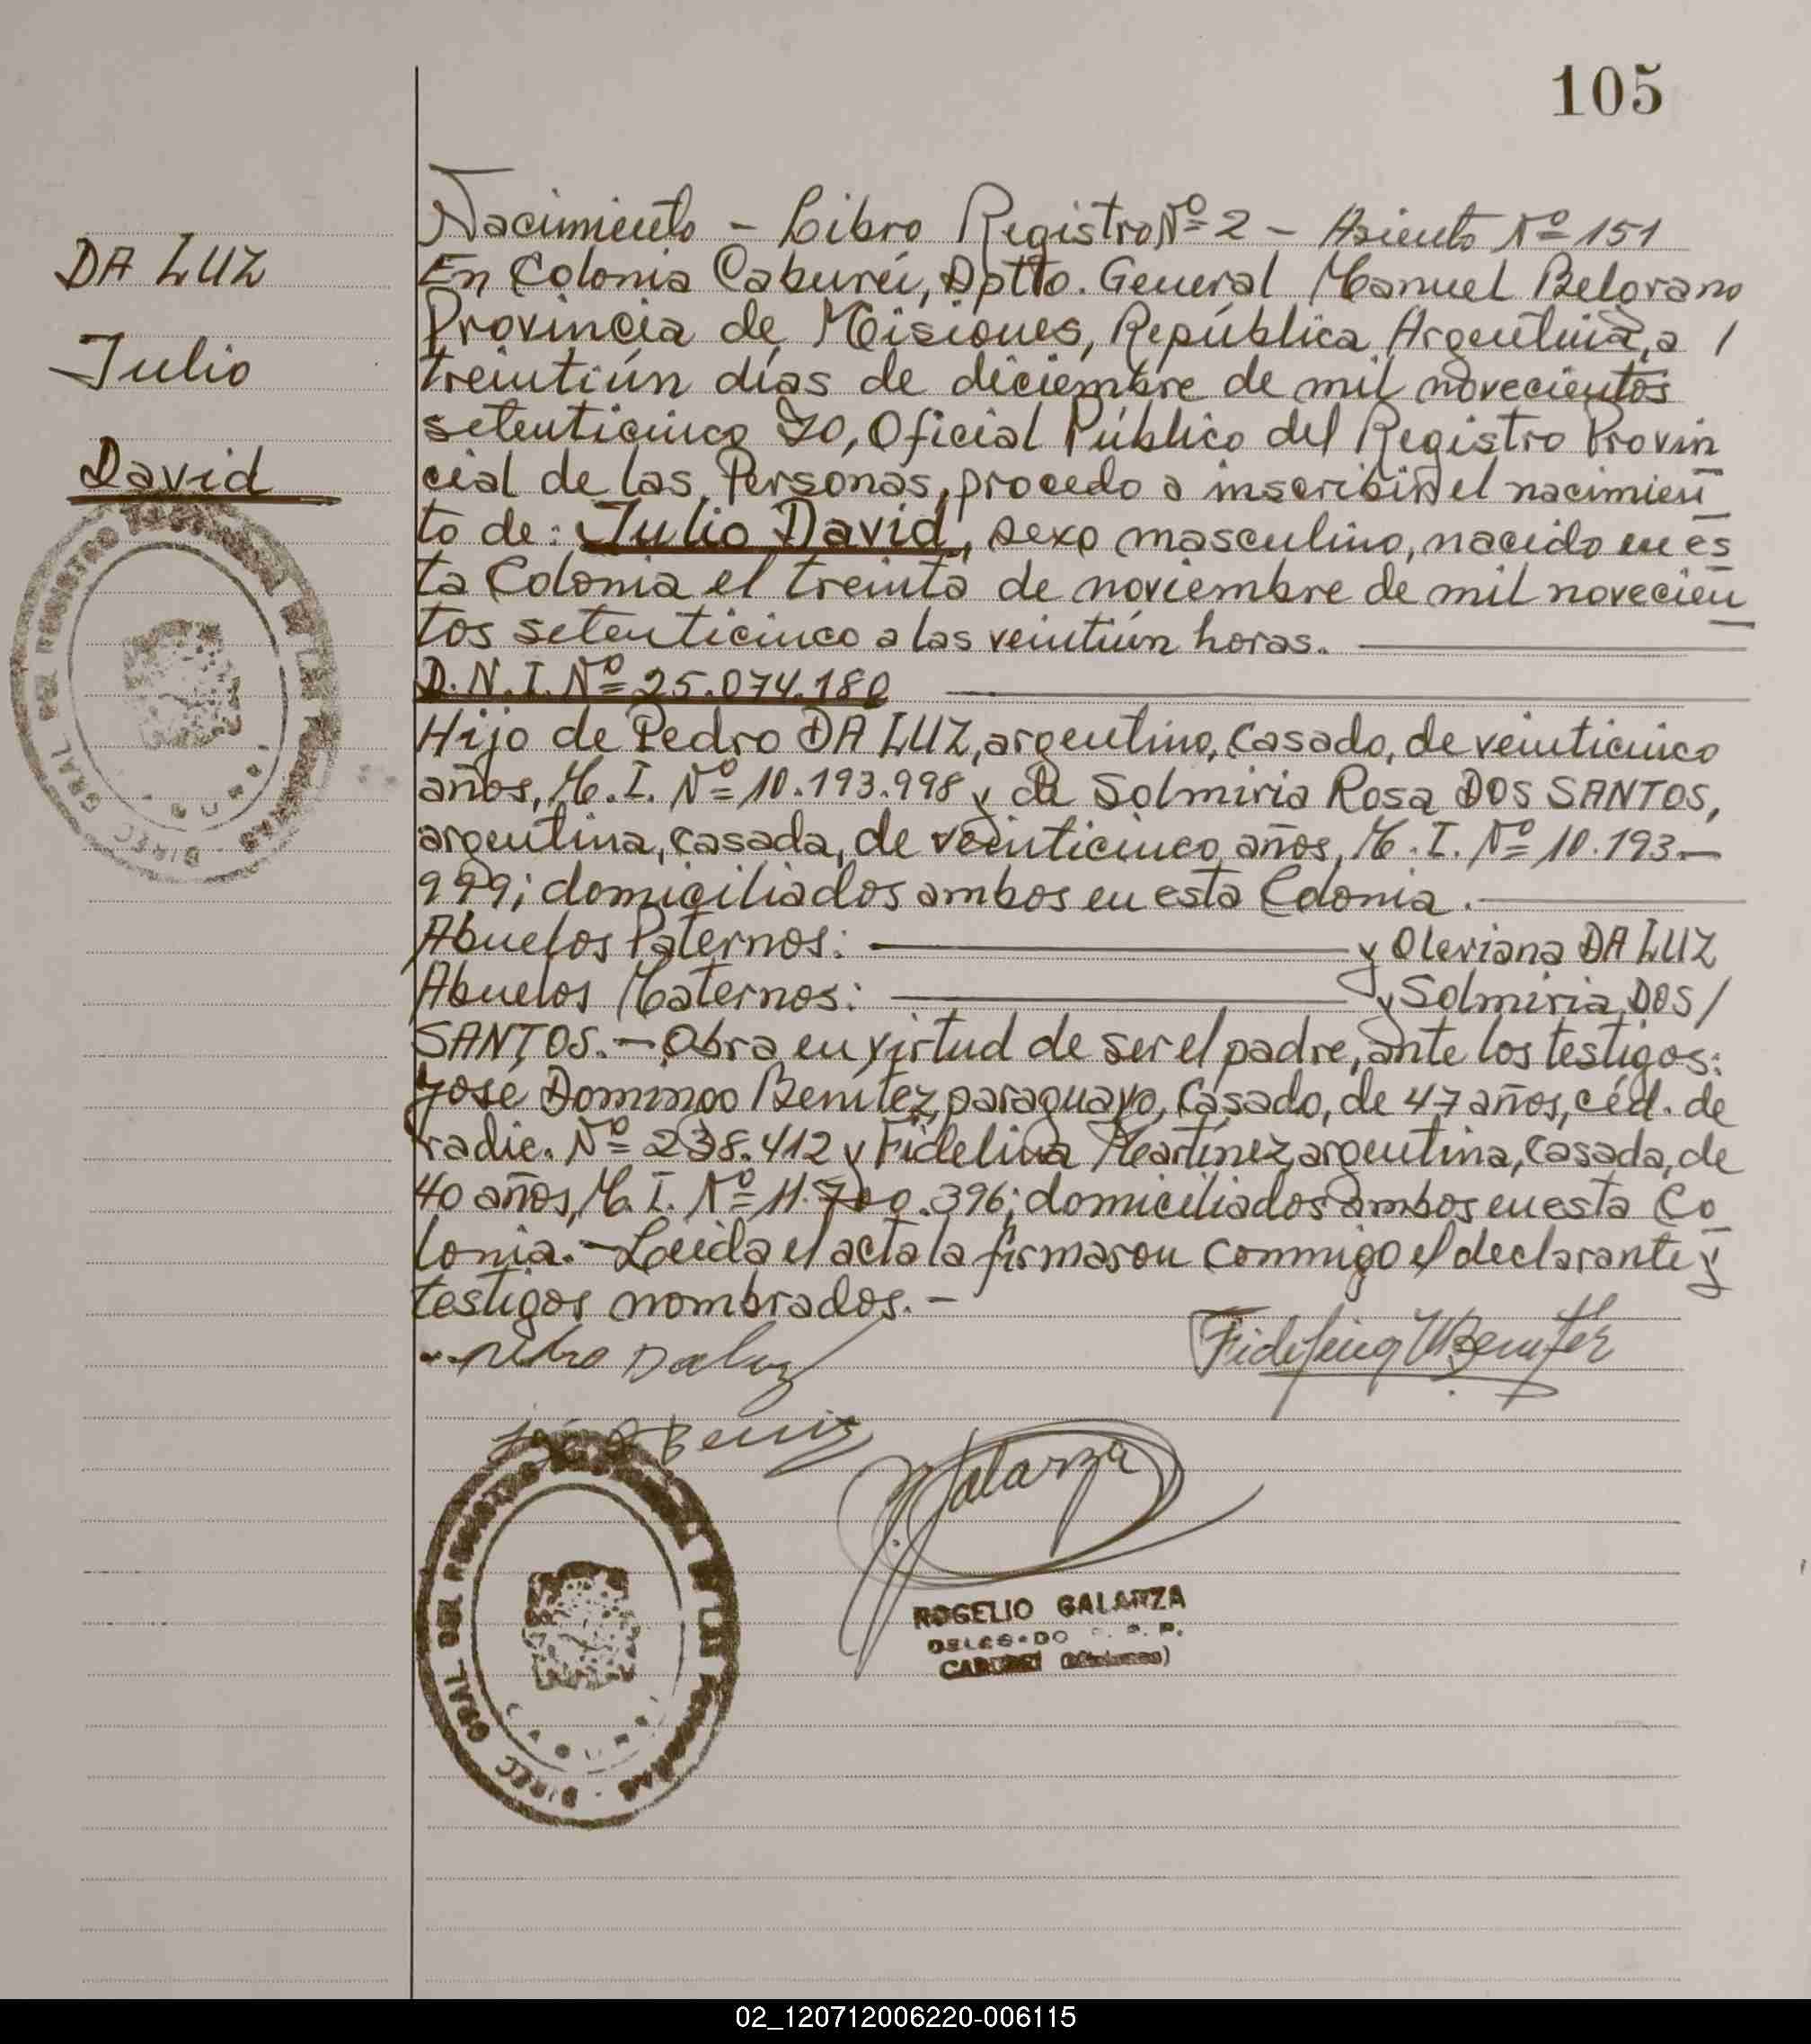 105
DA LUZ
Julio
David
Nacimiento - Libro Registro Nº 2 - Asiento Nº 151
En Colonia Caburéi, Dptto. General Manuel Belgrano
Provincia de Misiones, República Argentina, a /
treintiún días de diciembre de mil novecientos
setenticinco Yo, Oficial Público del Registro Provin
cial de las Personas, procedo a inscribir el nacimien
to de: Julio David, sexo masculino, nacido en es
ta Colonia el treinta de noviembre de mil novecien
tos setenticinco a las veintiún horas.
D.N.I. Nº 25.074.180
Hijo de Pedro DA LUZ, argentino, casado, de veinticinco
años, M.I. Nº 10.193.998 y de Solmiria Rosa DOS SANTOS,
argentina, casada, de veinticinco años, M.I. Nº 10.193.-
999; domiciliados ambos en esta Colonia.
Abuelos Paternos: y Oleriana DA LUZ
Abuelos Maternos: y Solmiria DOS /
SANTOS.- Obra en virtud de ser el padre, ante los testigos:
José Domingo Benítez, paraguayo, casado, de 47 años, céd. de
radic. Nº 238.412 y Fidelina Martínez, argentina, casada, de
40 años, M.I. Nº 11.700.396; domiciliados ambos en esta Co
lonia.- Leída el acta la firmaron conmigo el declarante y
testigos nombrados.-
Pedro Da Luz
Fidelina M Benítez
José D Beniz
Galarza
ROGELIO GALARZA
DELEGADO
CABUREI (Misiones)
DIREC GRAL DEL REGISTRO
DIREC GRAL DEL REGISTRO
02_120712006220-006115